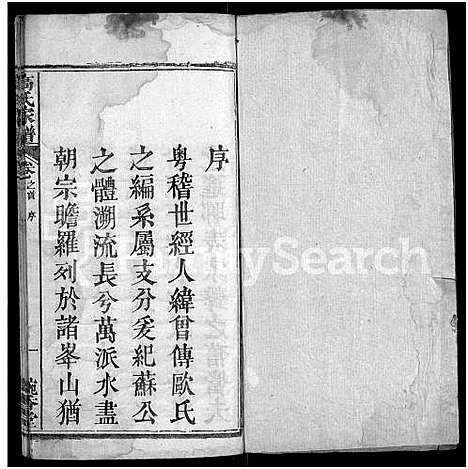 序
粵稽世經人緯曾傳歐氏
之編系屬支分爰紀蘇公
之體溯流長兮萬派水盡
朝宗瞻羅列於諸峯山猶
氏家譜
卷之首
序
一
堂
FamilySearch